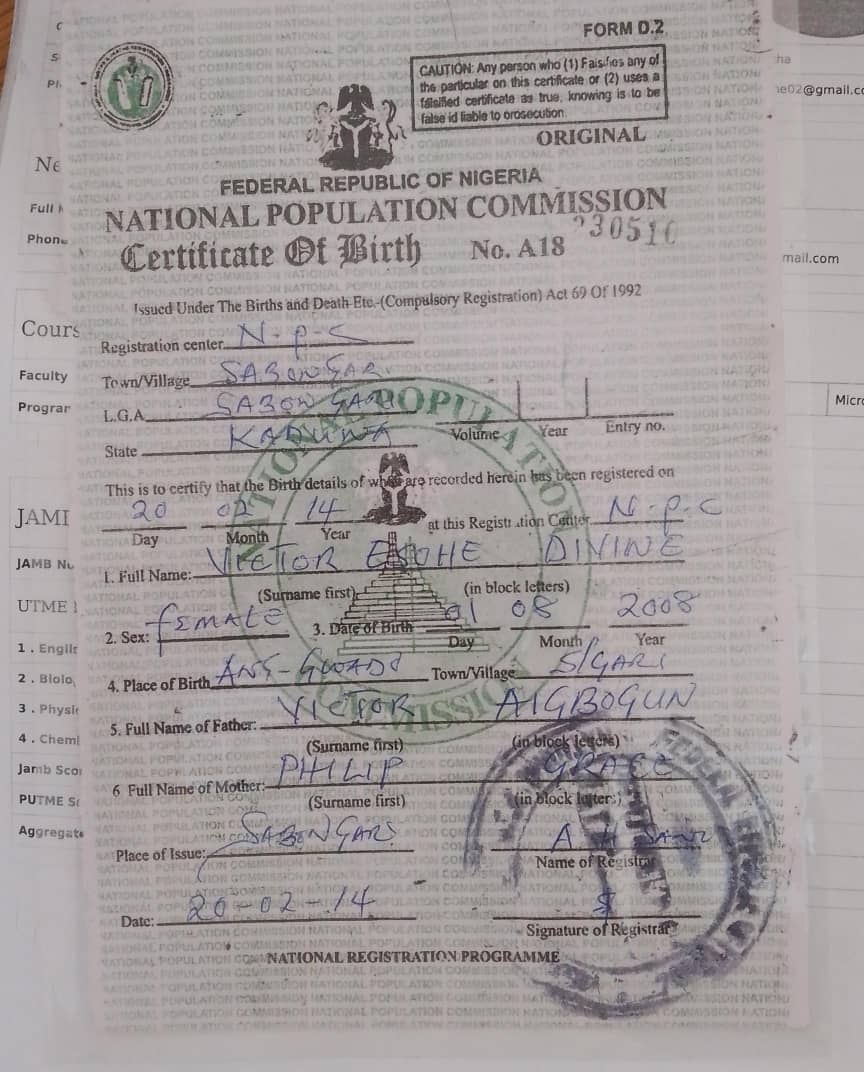 FORM D.2
CAUTION: Any person who (1) Falsifies any of
the particular on this certificate or (2) uses a
falsified certificate as true, knowing is to be
false id liable to orosecution
ORIGINAL
FEDERAL REPUBLIC OF NIGERIA
NATIONAL POPULATION COMMISSION
Certificate Of Birth No. A18 230510
Issued Under The Births and Death Etc.-(Compulsory Registration) Act 69 Of 1992
Registration center N-P-C
Town/Village SABON GARI
L.G.A SABON GARI
State KADUNA
Volume Year Entry no.
This is to certify that the Birth details of who are recorded herein has been registered on
20 02 14 at this Registration Center N-P-C
Day Month Year
1. Full Name: VICTOR ESOHE DIVINE
(Surname first) (in block letters)
2. Sex: FEMALE 3. Date of Birth 01 08 2008
Day Month Year
4. Place of Birth Town/Village S/GARI
5. Full Name of Father: VICTOR AIGBOGUN
(Surname first) (in block letters)
6 Full Name of Mother: PHILIP GRACE
(Surname first) (in block letters)
Place of Issue: SABON GARI
Name of Registrar
Date: 20-02-14
Signature of Registrar
NATIONAL REGISTRATION PROGRAMME
NATIONAL POPULATION COMMISSION
Full
Phone
Cours
Faculty
Program
JAMB
UTME
1 .
2 . Biolo
3 . Physi
4 . Chemi
Jamb Sco
PUTME
Aggregate
ha
e02@gmail.c
mail.com
Micr